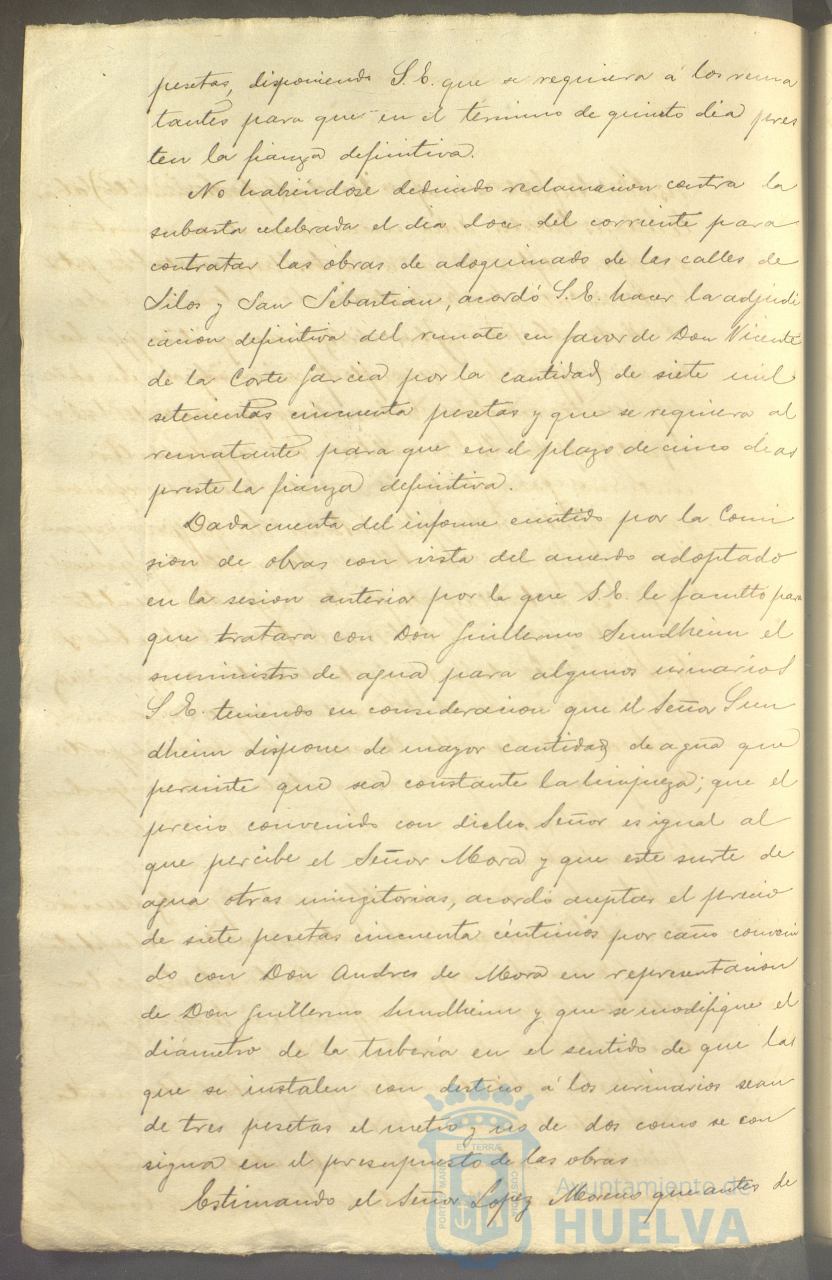 pesetas, disponiendo S. E. que se requiera á los rema
tantes para que en el término de quinto dia pres
ten la fianza definitiva.
No habiéndose deducido reclamacion contra la
subasta celebrada el dia doce del corriente para
contratar las obras de adoquinado de las calles de
Silos y San Sebastian, acordó S. E. hacer la adjudi
cacion definitiva del remate en favor de Don Vicente
de la Corte Garcia por la cantidad de siete mil
setecientas cincuenta pesetas y que se requiera al
rematante para que en el plazo de cinco dias
preste la fianza definitiva.
Dada cuenta del informe emitido por la Comi
sion de obras con vista del acuerdo adoptado
en la sesion anterior por la que S. E. le facultó para
que tratara con Don Guillermo Sundheim el
suministro de agua para algunos urinarios
S. E. teniendo en consideracion que el Señor Sun
dheim dispone de mayor cantidad de agua que
permite que sea constante la limpieza; que el
precio convenido con dicho Señor es igual al
que percibe el Señor Mora y que este surte de
agua otras mingitorias, acordó aceptar el precio
de siete pesetas cincuenta céntimos por caño conveni
do con Don Andres de Mora en representacion
de Don Guillermo Sundheim y que se modifique el
diámetro de la tuberia en el sentido de que las
que se instalen con destino á los urinarios sean
de tres pesetas el metro y no de dos como se con
signa en el presupuesto de las obras
Estimando el Señor Lopez Moreno que antes de
Ayuntamiento de
HUELVA